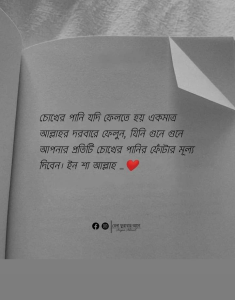 চোখের পানি যদি ফেলতে হয় একমাত্র
আল্লাহর দরবারে ফেলুন, যিনি গুনে গুনে
আপনার প্রতিটি চোখের পানির ফোঁটার মূল্য
দিবেন। ইন শা আল্লাহ ...❤️